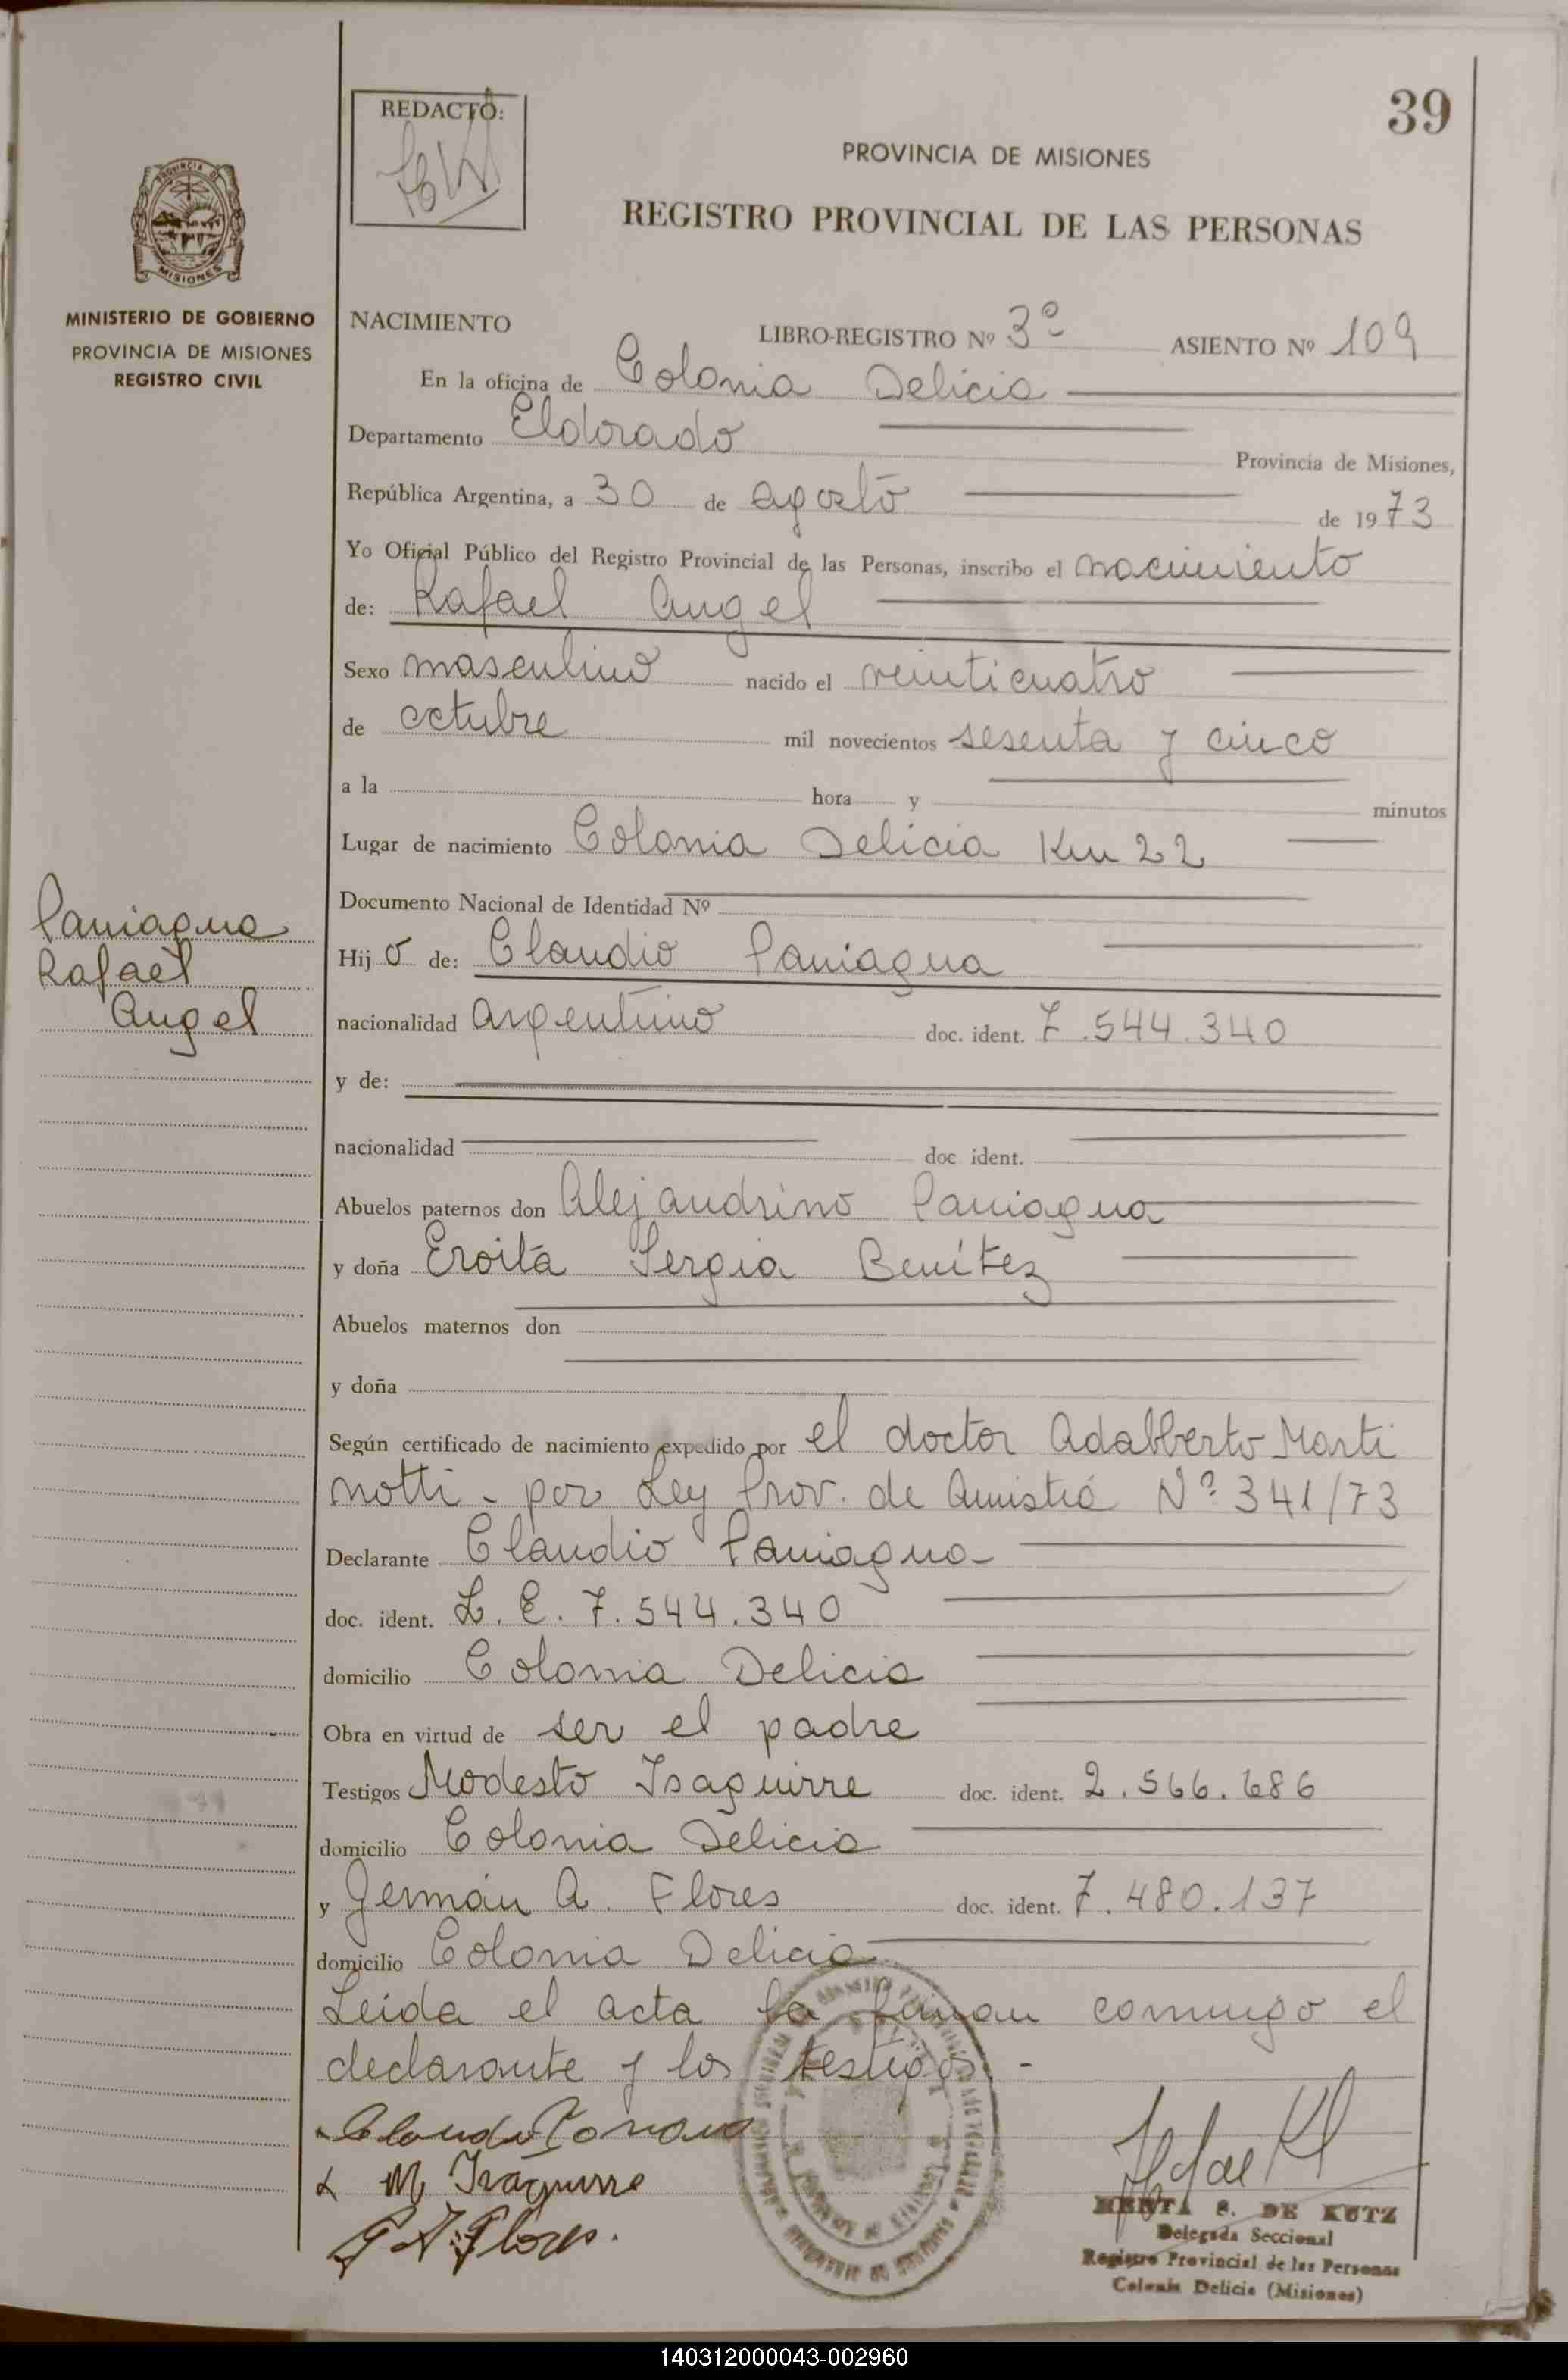 39
REDACTÓ:
PROVINCIA DE MISIONES
REGISTRO PROVINCIAL DE LAS PERSONAS
PROVINCIA DE
MISIONES
MINISTERIO DE GOBIERNO
PROVINCIA DE MISIONES
REGISTRO CIVIL
NACIMIENTO LIBRO-REGISTRO Nº 3º ASIENTO Nº 109
En la oficina de Colonia Delicia
Departamento Eldorado Provincia de Misiones,
República Argentina, a 30 de agosto de 1973
Yo Oficial Público del Registro Provincial de las Personas, inscribo el nacimiento
de: Rafael Angel
Sexo masculino nacido el veinticuatro
de octubre mil novecientos sesenta y cinco
a la hora y minutos
Lugar de nacimiento Colonia Delicia Km 22
Documento Nacional de Identidad Nº
Paniagua
Rafael
Angel
Hijo de: Claudio Paniagua
nacionalidad argentino doc. ident. 7.544.340
y de:
nacionalidad doc ident.
Abuelos paternos don Alejandrino Paniagua
y doña Eroita Sergia Benítez
Abuelos maternos don
y doña
Según certificado de nacimiento expedido por el doctor Adalberto Marti
notti - por Ley Prov. de Amistía Nº 341/73
Declarante Claudio Paniagua
doc. ident. L. E. 7.544.340
domicilio Colonia Delicia
Obra en virtud de ser el padre
Testigos Modesto Isaguirre doc. ident. 2.566.686
domicilio Colonia Delicia
y Germán A. Flores doc. ident. 7.480.137
domicilio Colonia Delicia
Leida el acta la firman conmigo el
declarante y los testigos.-
M Isaguirre
G A. Flores.
HERTA S. DE KUTZ
Delegada Seccional
Registro Provincial de las Personas
Colonia Delicia (Misiones)
140312000043-002960